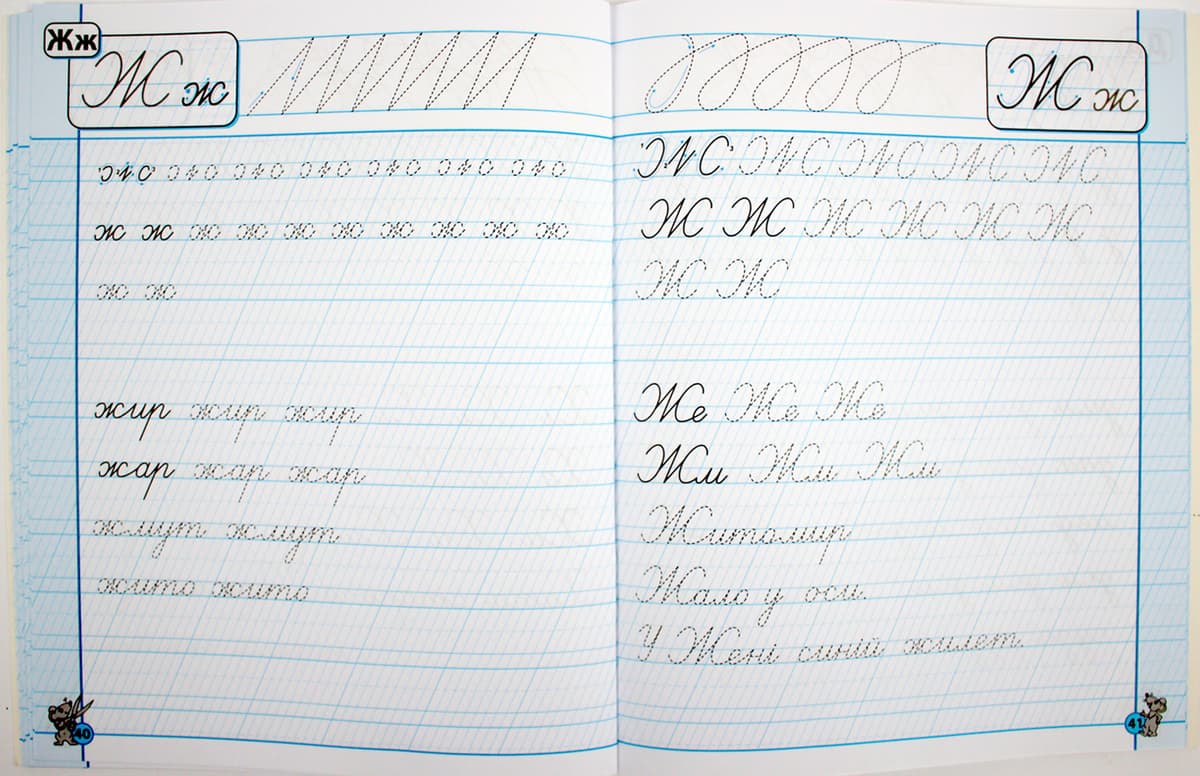 Жж
Ж ж
ж ж ж ж ж ж ж
ж ж ж ж ж ж ж ж ж ж
ж ж
жир жир жир
жар жар жар
жмут жмут
жито жито
40
Ж ж
Ж Ж Ж Ж Ж
Ж Ж Ж Ж Ж Ж
Ж Ж
Же Же Же
Жм Жм Жм
Житомир
Жало у оси.
У Жені синій жилет.
41